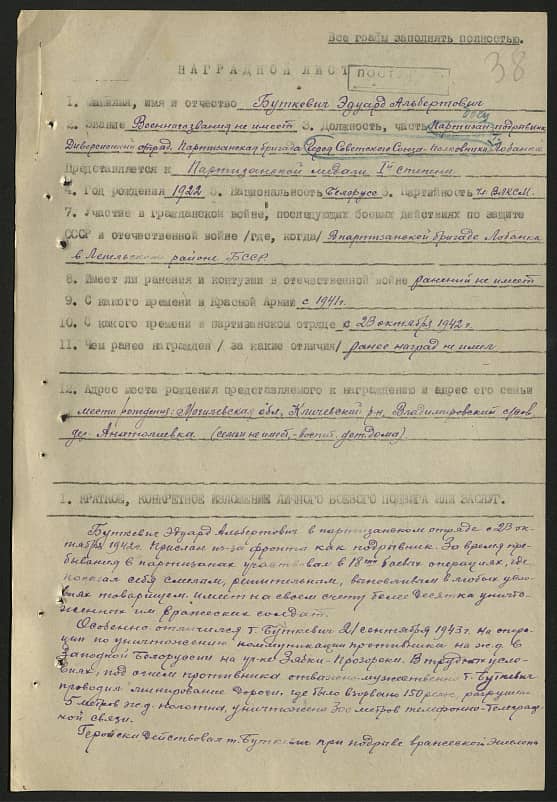 Все графы заполнять полностью.
38
НАГРАДНОЙ ЛИСТ
1. Фамилия, имя и отчество Буткевич Эдуард Альбертович
2. Звание Военного звания не имеет 3. Должность, часть Партизан подрывник
Диверсионный отряд. Партизанская бригада Героя Советского Союза - полковника Лобанка
Представляется к Партизанской медали I степени.
4. Год рождения 1922 5. Национальность Белорусс 6. Партийность чл ВЛКСМ.
7. Участие в гражданской войне, последующих боевых действиях по защите
СССР и отечественной войне /где, когда/ В партизанской бригаде Лобанка
в Лепельском районе БССР.
8. Имеет ли ранения и контузии в отечественной войне ранений не имеет
9. С какого времени в Красной Армии с 1941 г.
10. С какого времени в партизанском отряде с 23 октября 1942 г.
11. Чем ранее награжден / за какие отличия/ ранее наград не имел
12. Адрес места рождения представляемого к награждению и адрес его семьи
место рождения: Могилевская обл, Кличевский р-н, Владимировский с/сов,
дер. Анатолиевка (семьи не имеет, - воспит. дет.дома)
I. КРАТКОЕ, КОНКРЕТНОЕ ИЗЛОЖЕНИЕ ЛИЧНОГО БОЕВОГО ПОДВИГА ИЛИ ЗАСЛУГ.
Буткевич Эдуард Альбертович в партизанском отряде с 23 ок-
тября 1942 г. Прислан из-за фронта как подрывник. За время пре-
бывания в партизанах участвовал в 18 боевых операциях, где
показал себя смелым, решительным, в любых усло-
виях товарищем. имеет на своем счету более десятка уничто-
женных им вражеских солдат.
Особенно отличился т. Буткевич 21 сентября 1943 г. На опера-
ции по уничтожению коммуникации противника на ж.д. в
Западной Белоруссии на уч-ке Зябки-Прозороки. В трудных усло-
виях, под огнем противника отважно мужественно т. Буткевич
проводил минирование дороги, где было взорвано 150 рельс, разрушено
5 метров ж.д. полотна, уничтожено 300 метров телефонно-телеграф-
ной связи.
Геройски действовал т. Буткевич при подрыве вражеских эшелонов